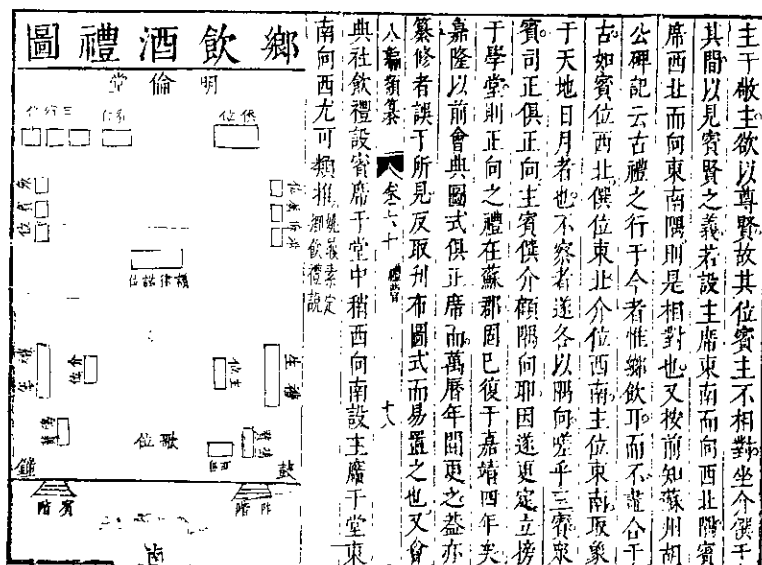 主于敬主欲以尊賢故其位賓主不相對坐介僎于
其間以見賓賢之義若設主席東南而向西北隅賓
席西北而向東南隅則是相對也又按前知蘇州胡
公碑記云古禮之行于今者惟鄉飲耳而不盡合于
古如賓位西北僎位東北介位西南主位東南取象
于天地日月者也不察者遂各以隅向嗟乎三賓衆
賓司正俱正向主賓僎介顧隅向耶因遂更定立榜
于學堂則正向之禮在蘇郡固已復于嘉靖四年矣
嘉隆以前會典圖式俱正席而萬曆年間更之蓋亦
纂修者誤于所見反取刊布圖式而易置之也又會
八編類纂 卷六十 禮曹 十八
典社飲禮設賓席于堂中稍西向南設主席于堂東
南向西尤可類推 姚旅素定
鄉飲禮說
鄉飲酒禮圖
明倫堂
僎位
賓位
三賓位
衆賓位
律誥位
主位
介位
歌位
鼓
鐘
阼階
賓階